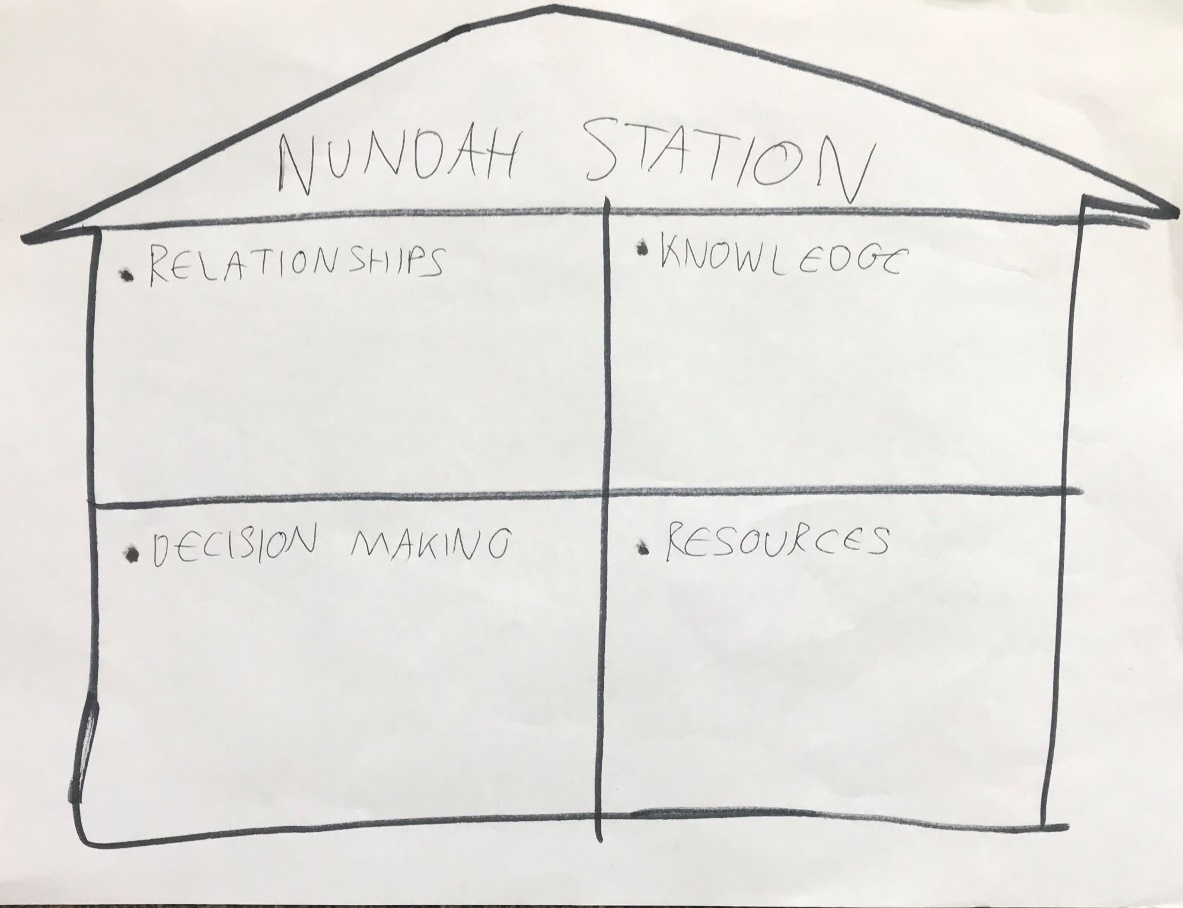 NUNDAH STATION
• RELATIONSHIPS
• KNOWLEDGE
• DECISION MAKING
• RESOURCES